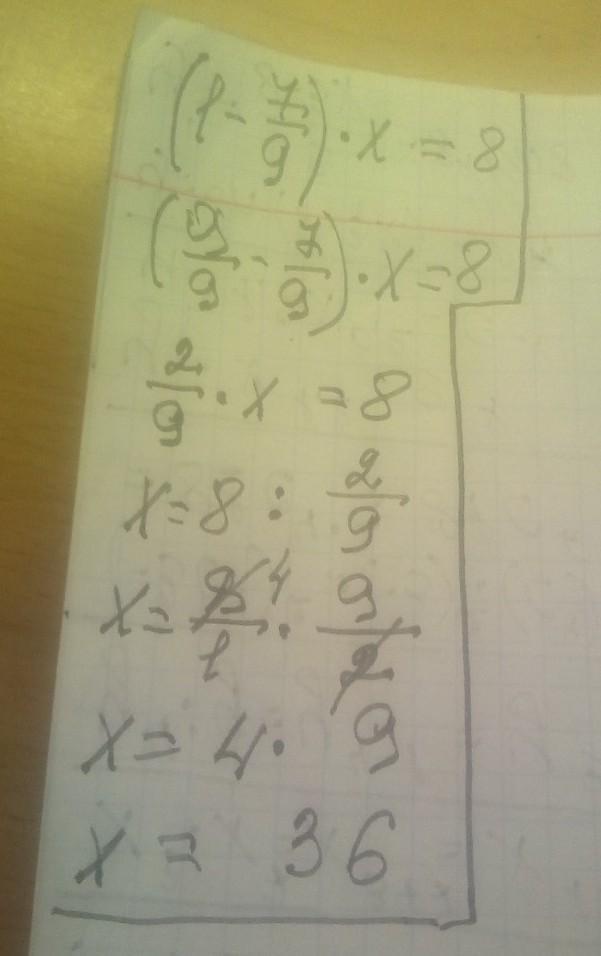 (1 - 7/9) · x = 8
(9/9 - 7/9) · x = 8
2/9 · x = 8
x = 8 : 2/9
x = 8 4/1 · 9/2
x = 4 · 9
x = 36